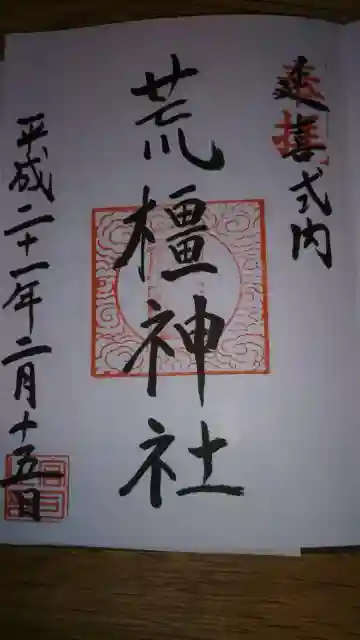 延喜式内
荒橿神社
平成二十一年二月十五日
奉拝